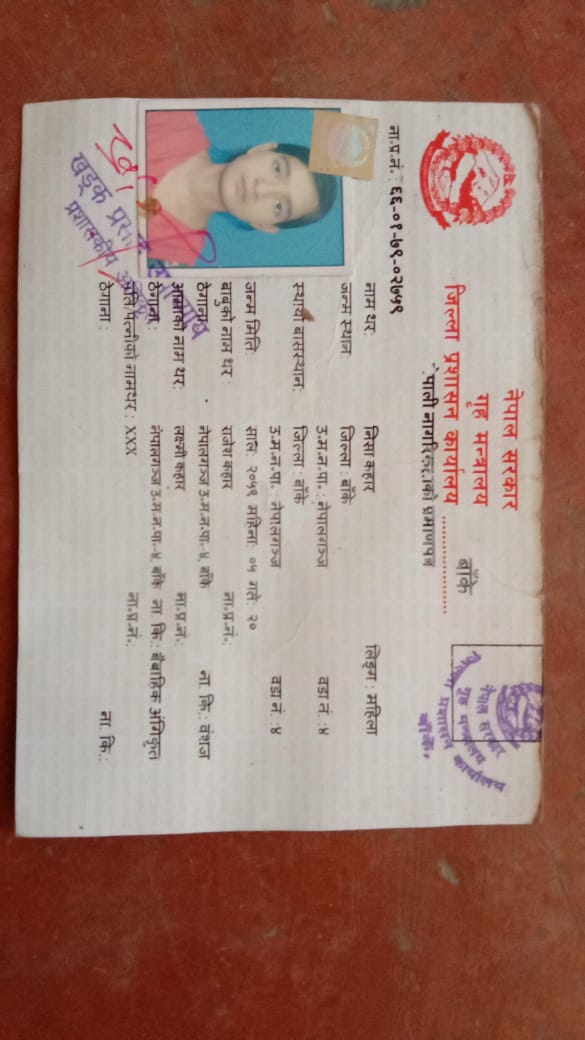 नेपाल सरकार
गृह मन्त्रालय
जिल्ला प्रशासन कार्यालय ............ बाँके
नेपाली नागरिकताको प्रमाणपत्र
ना.प्र.नं.: ६६-०१-७९-०२७५९
नाम थर: निसा कहार लिङ्ग : महिला
जन्म स्थान: जिल्ला : बाँके
उ.म.न.पा. : नेपालगञ्ज वडा नं. :४
स्थायी बासस्थान: जिल्ला : बाँके
उ.म.न.पा. : नेपालगञ्ज वडा नं. :४
जन्म मिति: साल: २०५९ महिना: ०५ गते: २०
बाबुको नाम थर : राजेश कहार ना.प्र.नं.:
ठेगाना: नेपालगञ्ज उ.म.न.पा.-४, बाँके ना. कि.: वंशज
आमाको नाम थर: लक्ष्मी कहार ना.प्र.नं.:
ठेगाना : नेपालगञ्ज उ.म.न.पा.-४, बाँके ना कि.: बैबाहिक अंगिकृत
पति/पत्नीको नामथर : XXX ना.प्र.नं.:
ठेगाना : ना. कि.:
नेपाल सरकार
गृह मन्त्रालय
जिल्ला प्रशासन कार्यालय
बाँके.
खड्क प्रसाद
प्रशासकीय